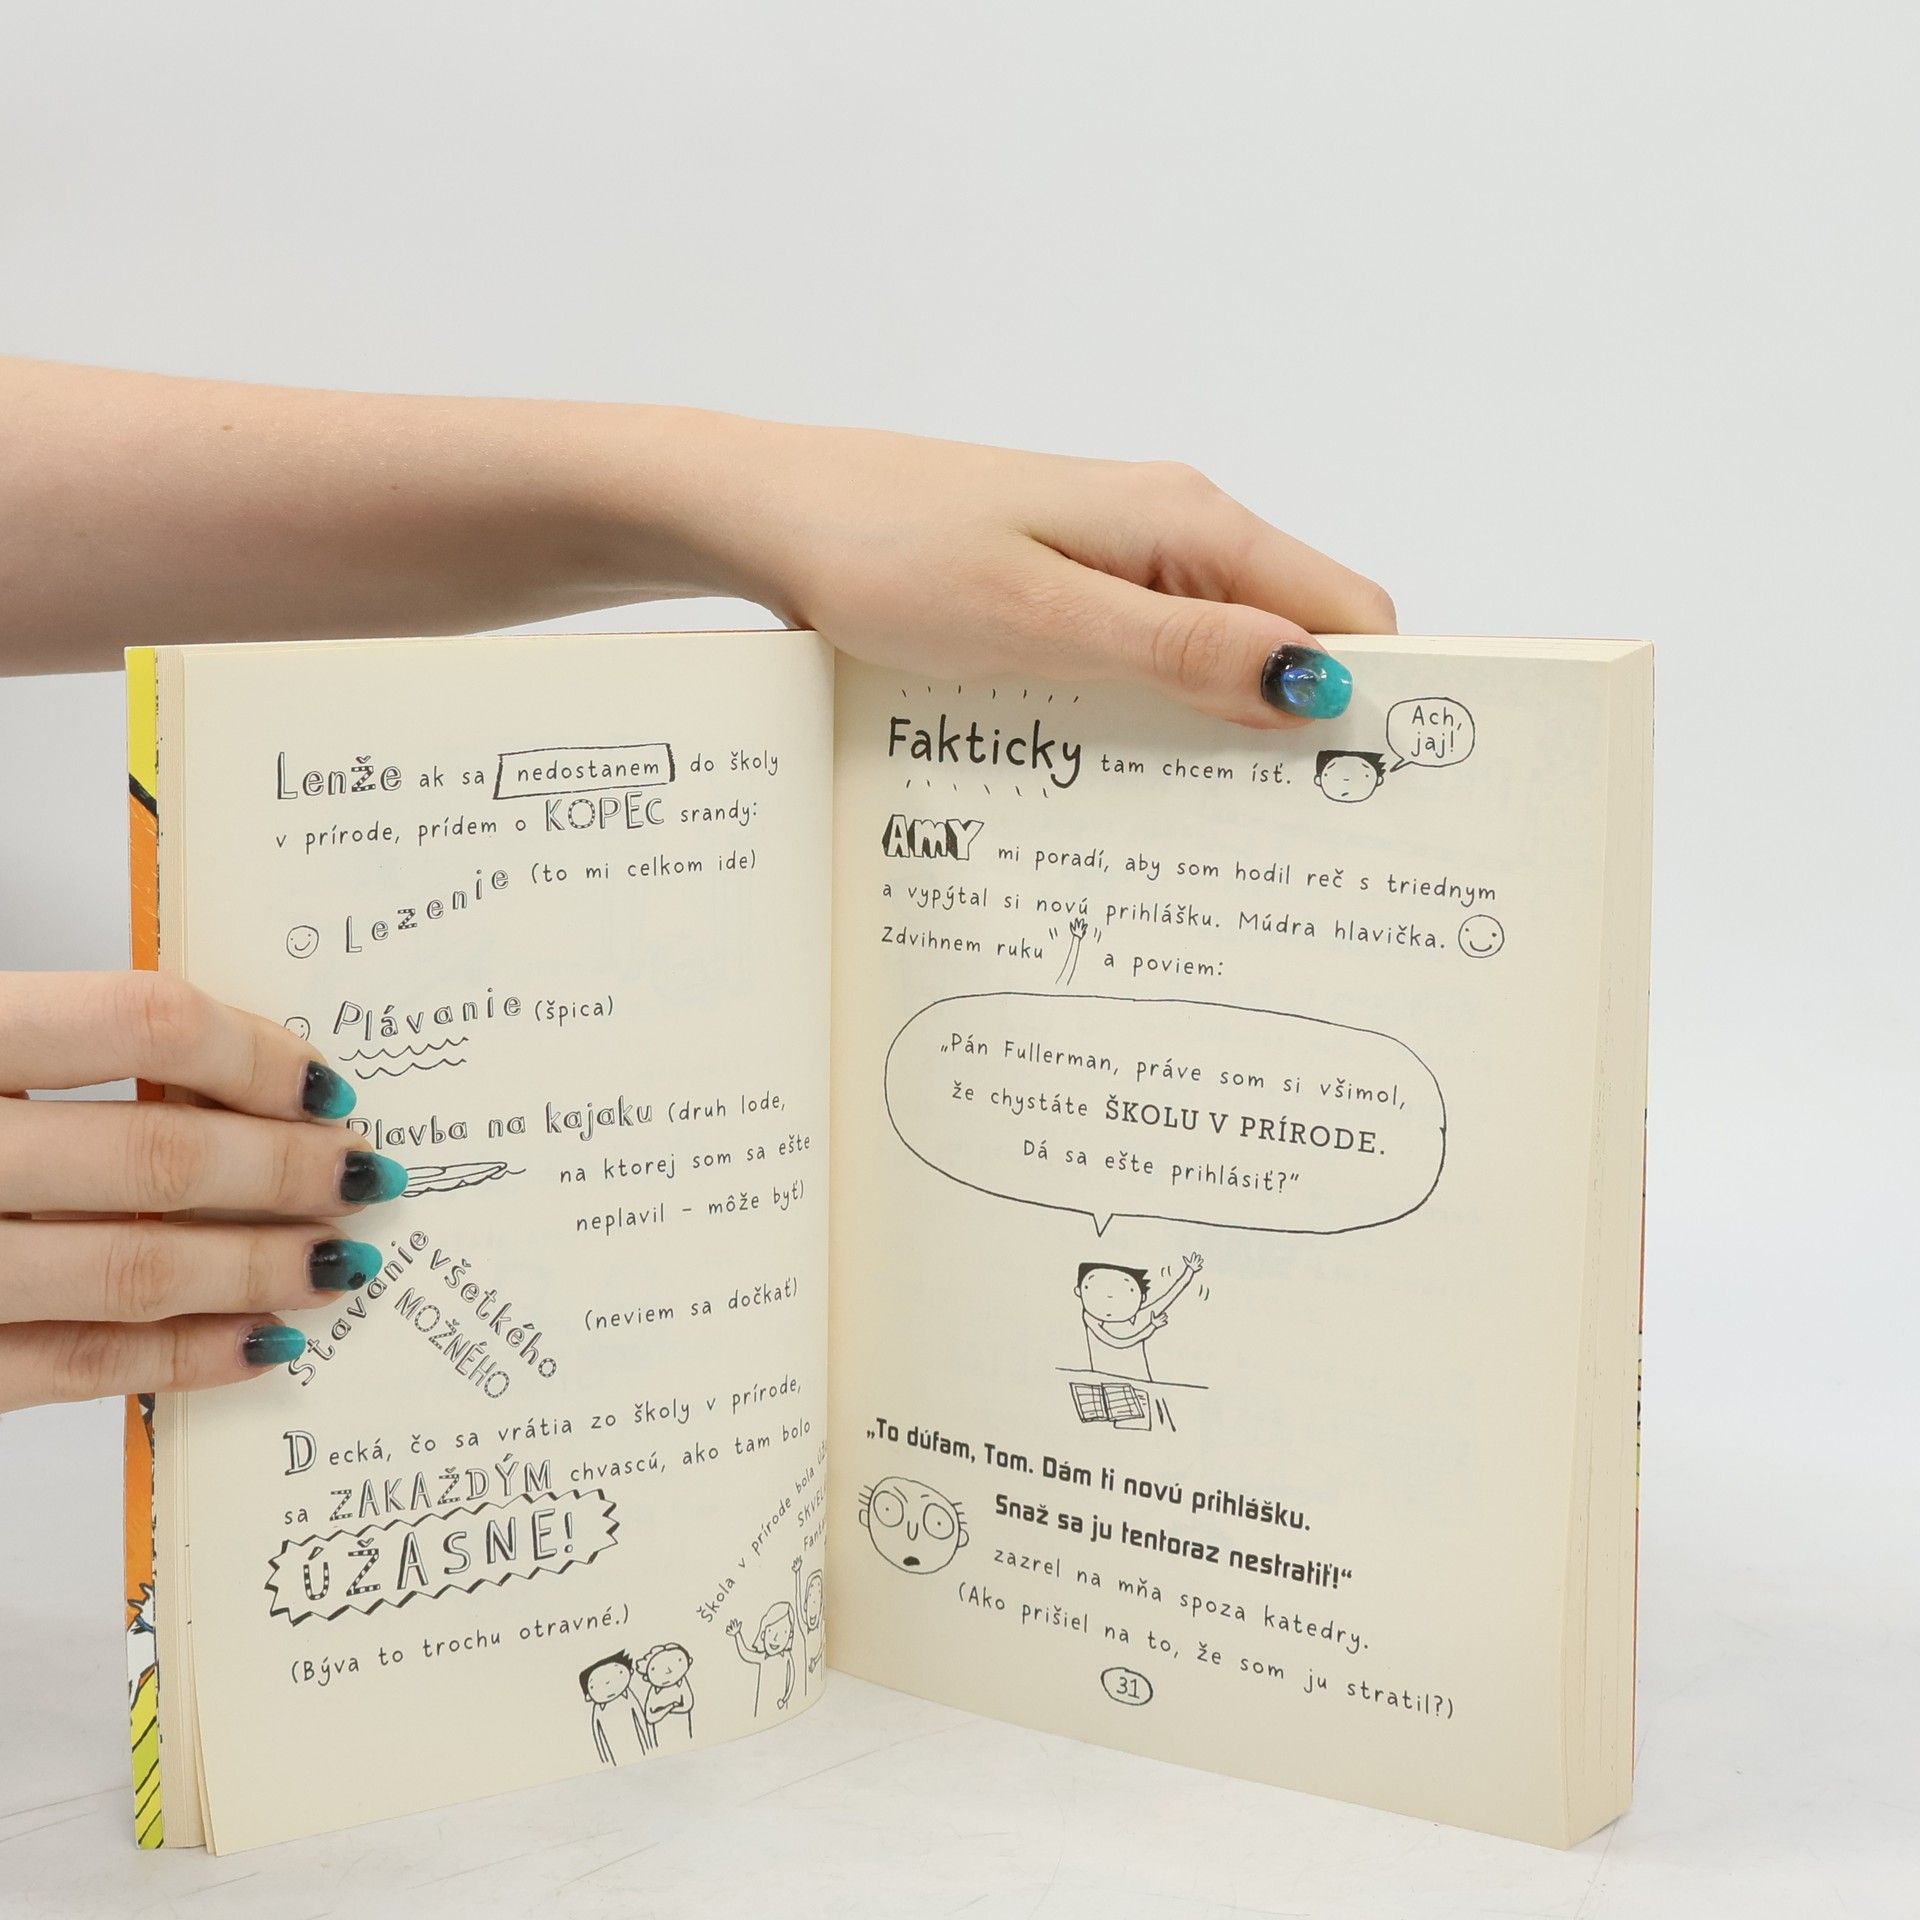 Lenže ak sa nedostanem do školy
v prírode, prídem o KOPEC srandy:
Lezenie (to mi celkom ide)
Plávanie (špica)
Plavba na kajaku (druh lode,
na ktorej som sa ešte
neplavil – môže byť)
Stavanie všetkého
MOŽNÉHO
(neviem sa dočkať)
Decká, čo sa vrátia zo školy v prírode,
sa ZAKAŽDÝM chvascú, ako tam bolo
ÚŽASNE!
(Býva to trochu otravné.)
Škola v prírode bola
Fakticky tam chcem ísť.
Ach,
jaj!
AMY mi poradí, aby som hodil reč s triednym
a vypýtal si novú prihlášku. Múdra hlavička.
Zdvihnem ruku a poviem:
„Pán Fullerman, práve som si všimol,
že chystáte ŠKOLU V PRÍRODE.
Dá sa ešte prihlásiť?“
„To dúfam, Tom. Dám ti novú prihlášku.
Snaž sa ju tentoraz nestratiť!“
zazrel na mňa spoza katedry.
(Ako prišiel na to, že som ju stratil?)
31